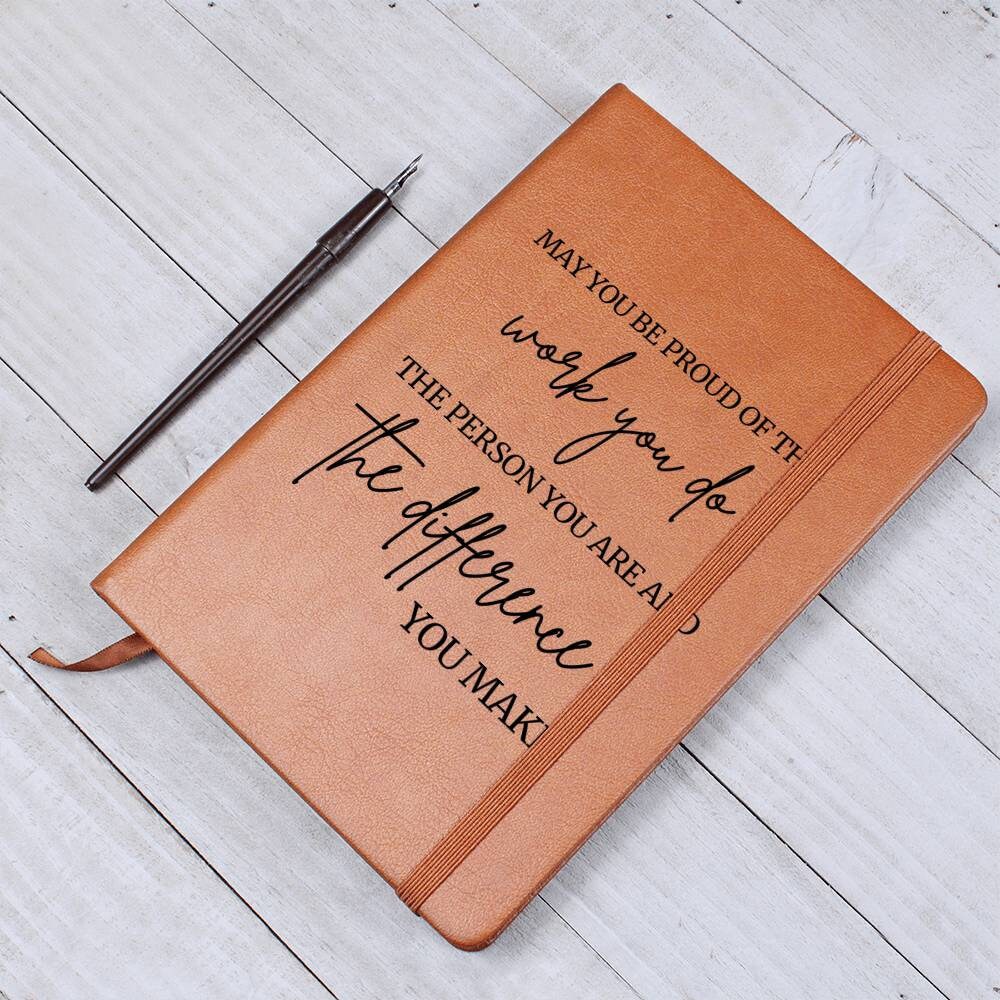 MAY YOU BE PROUD OF TH
work you do
THE PERSON YOU ARE AND
the difference
YOU MAKE